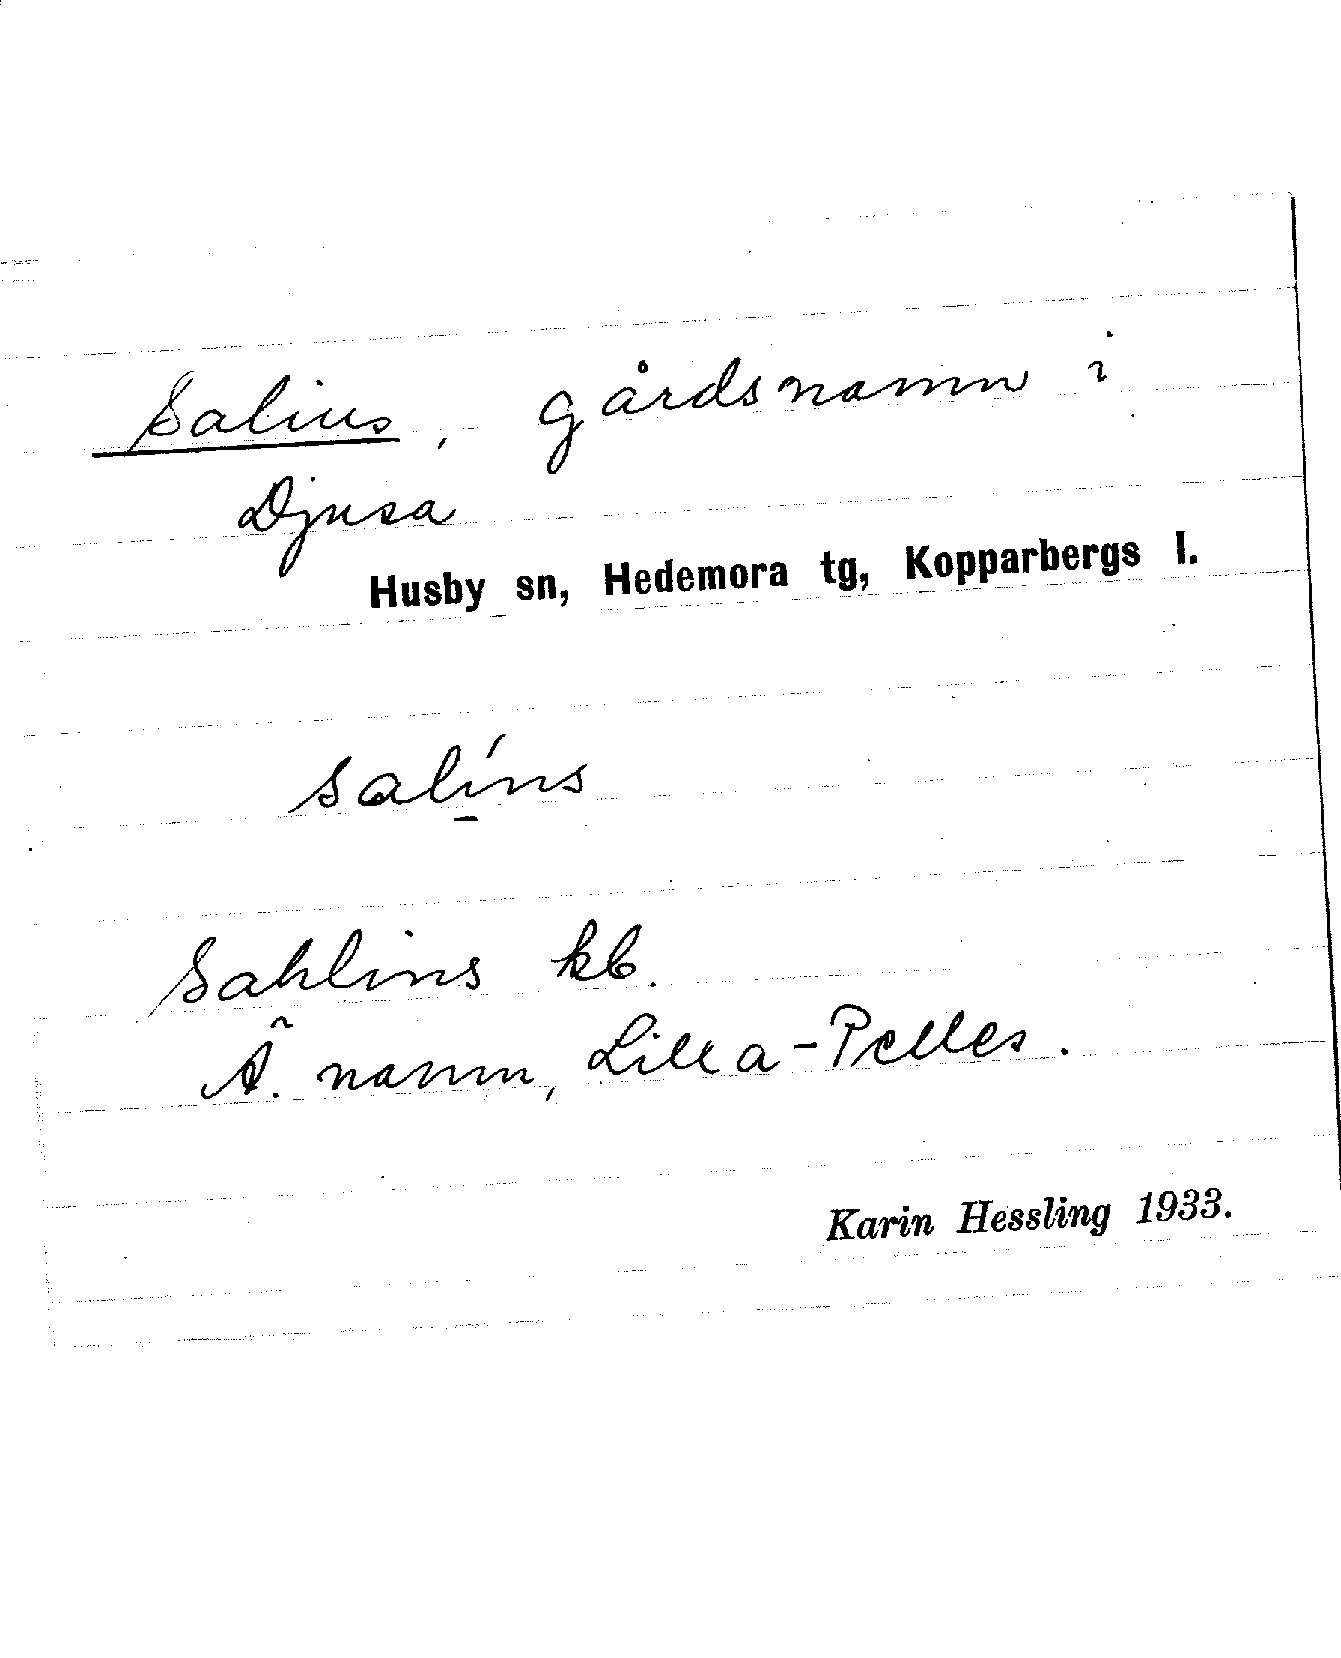 Salins, gårdsnamn i
Djusa
Husby sn, Hedemora tg, Kopparbergs l.
salí̱ns
Sahlins kb.
Ä. namn, Lilla-Pelles.
Karin Hessling 1933.